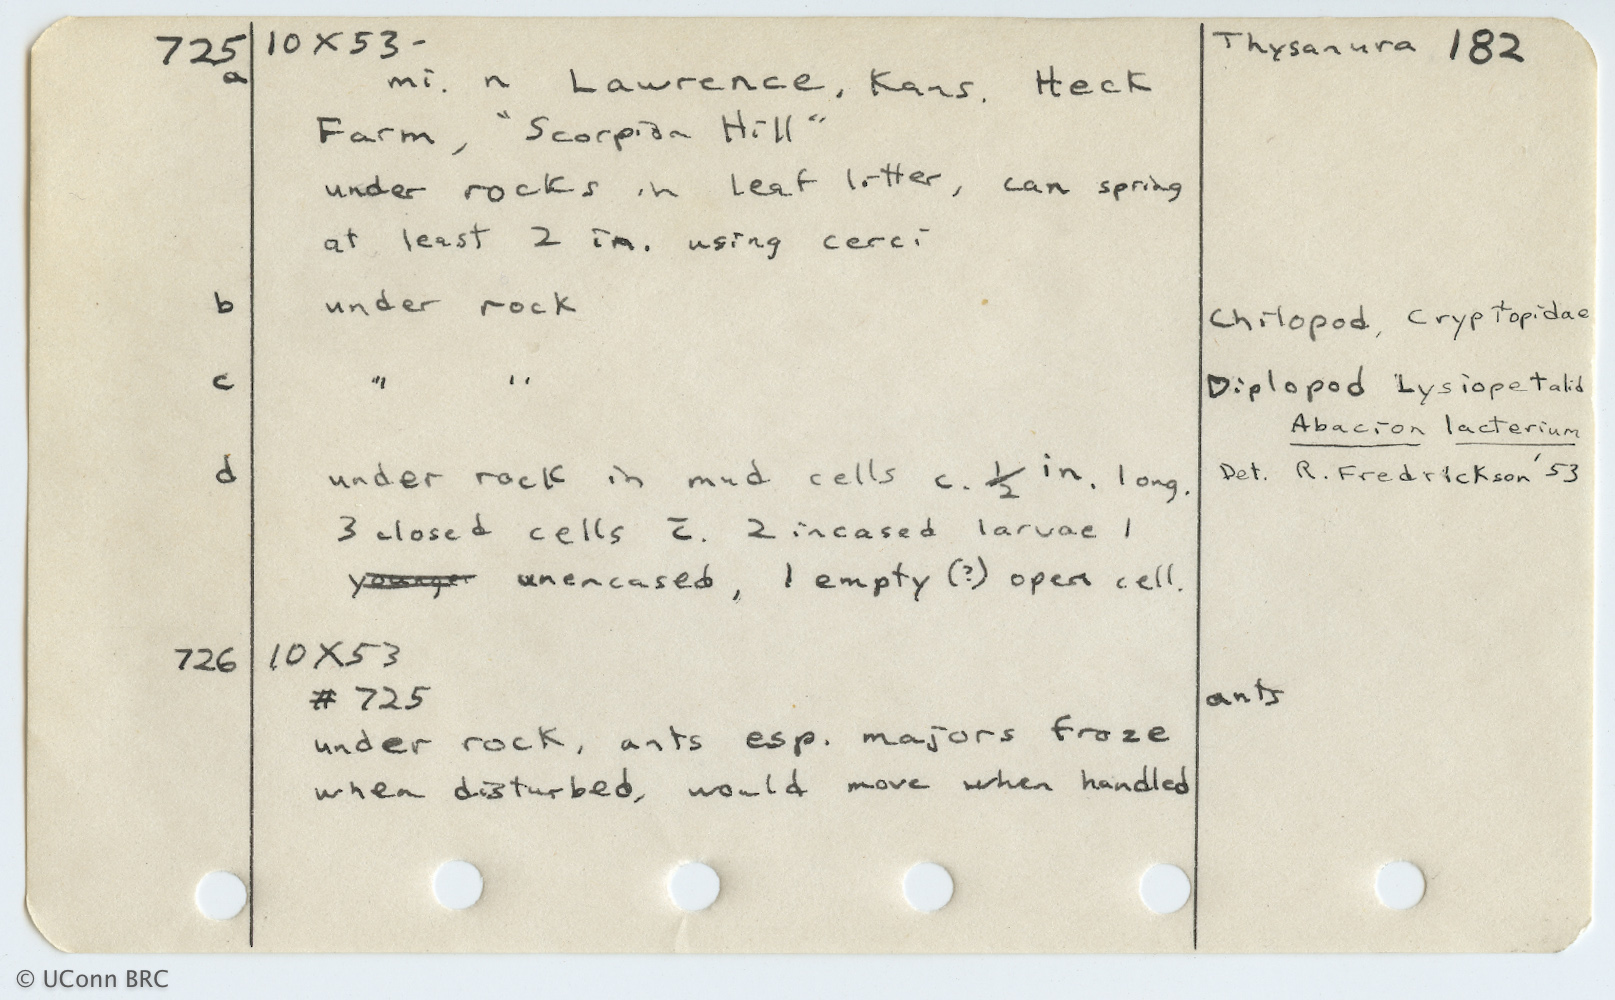 725 10 X 53 - Thysanura 182
a mi. n Lawrence, Kans. Heck
Farm, "Scorpion Hill"
under rocks in leaf litter, can spring
at least 2 in. using cerci
b under rock Chilopod, Cryptopidae
c " " Diplopod Lysiopetalid
Abacion lacterium
d under rock in mud cells c. 1/2 in. long. Det. R. Fredrickson '53
3 closed cells c̄. 2 incased larvae 1
younger unencased, 1 empty (?) open cell.
726 10 X 53
# 725 ants
under rock, ants esp. majors froze
when disturbed, would move when handled
© UConn BRC